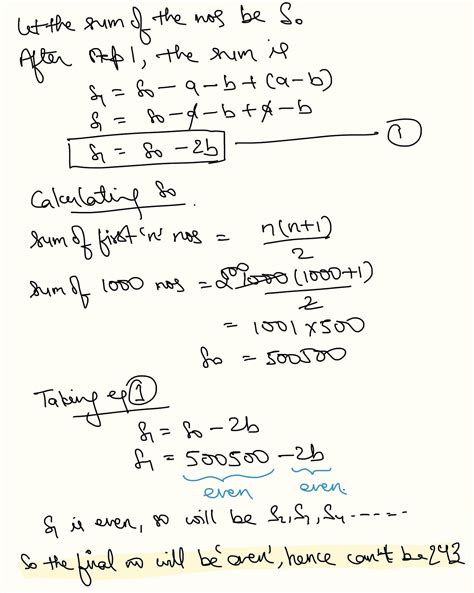 Let the sum of the nos be S₀
After step 1, the sum is
S₁ = S₀ - a - b + (a - b)
S₁ = S₀ - a - b + a - b
S₁ = S₀ - 2b ——— ①
Calculating S₀.
Sum of first 'n' nos = n(n+1)/2
Sum of 1000 nos = 500 1000 (1000+1)/2
= 1001 × 500
S₀ = 500500
Taking eq ①
S₁ = S₀ - 2b
S₁ = 500500 - 2b
even even.
S₁ is even, so will be S₂, S₃, S₄ -----
So the final no will be 'even', hence can't be 243